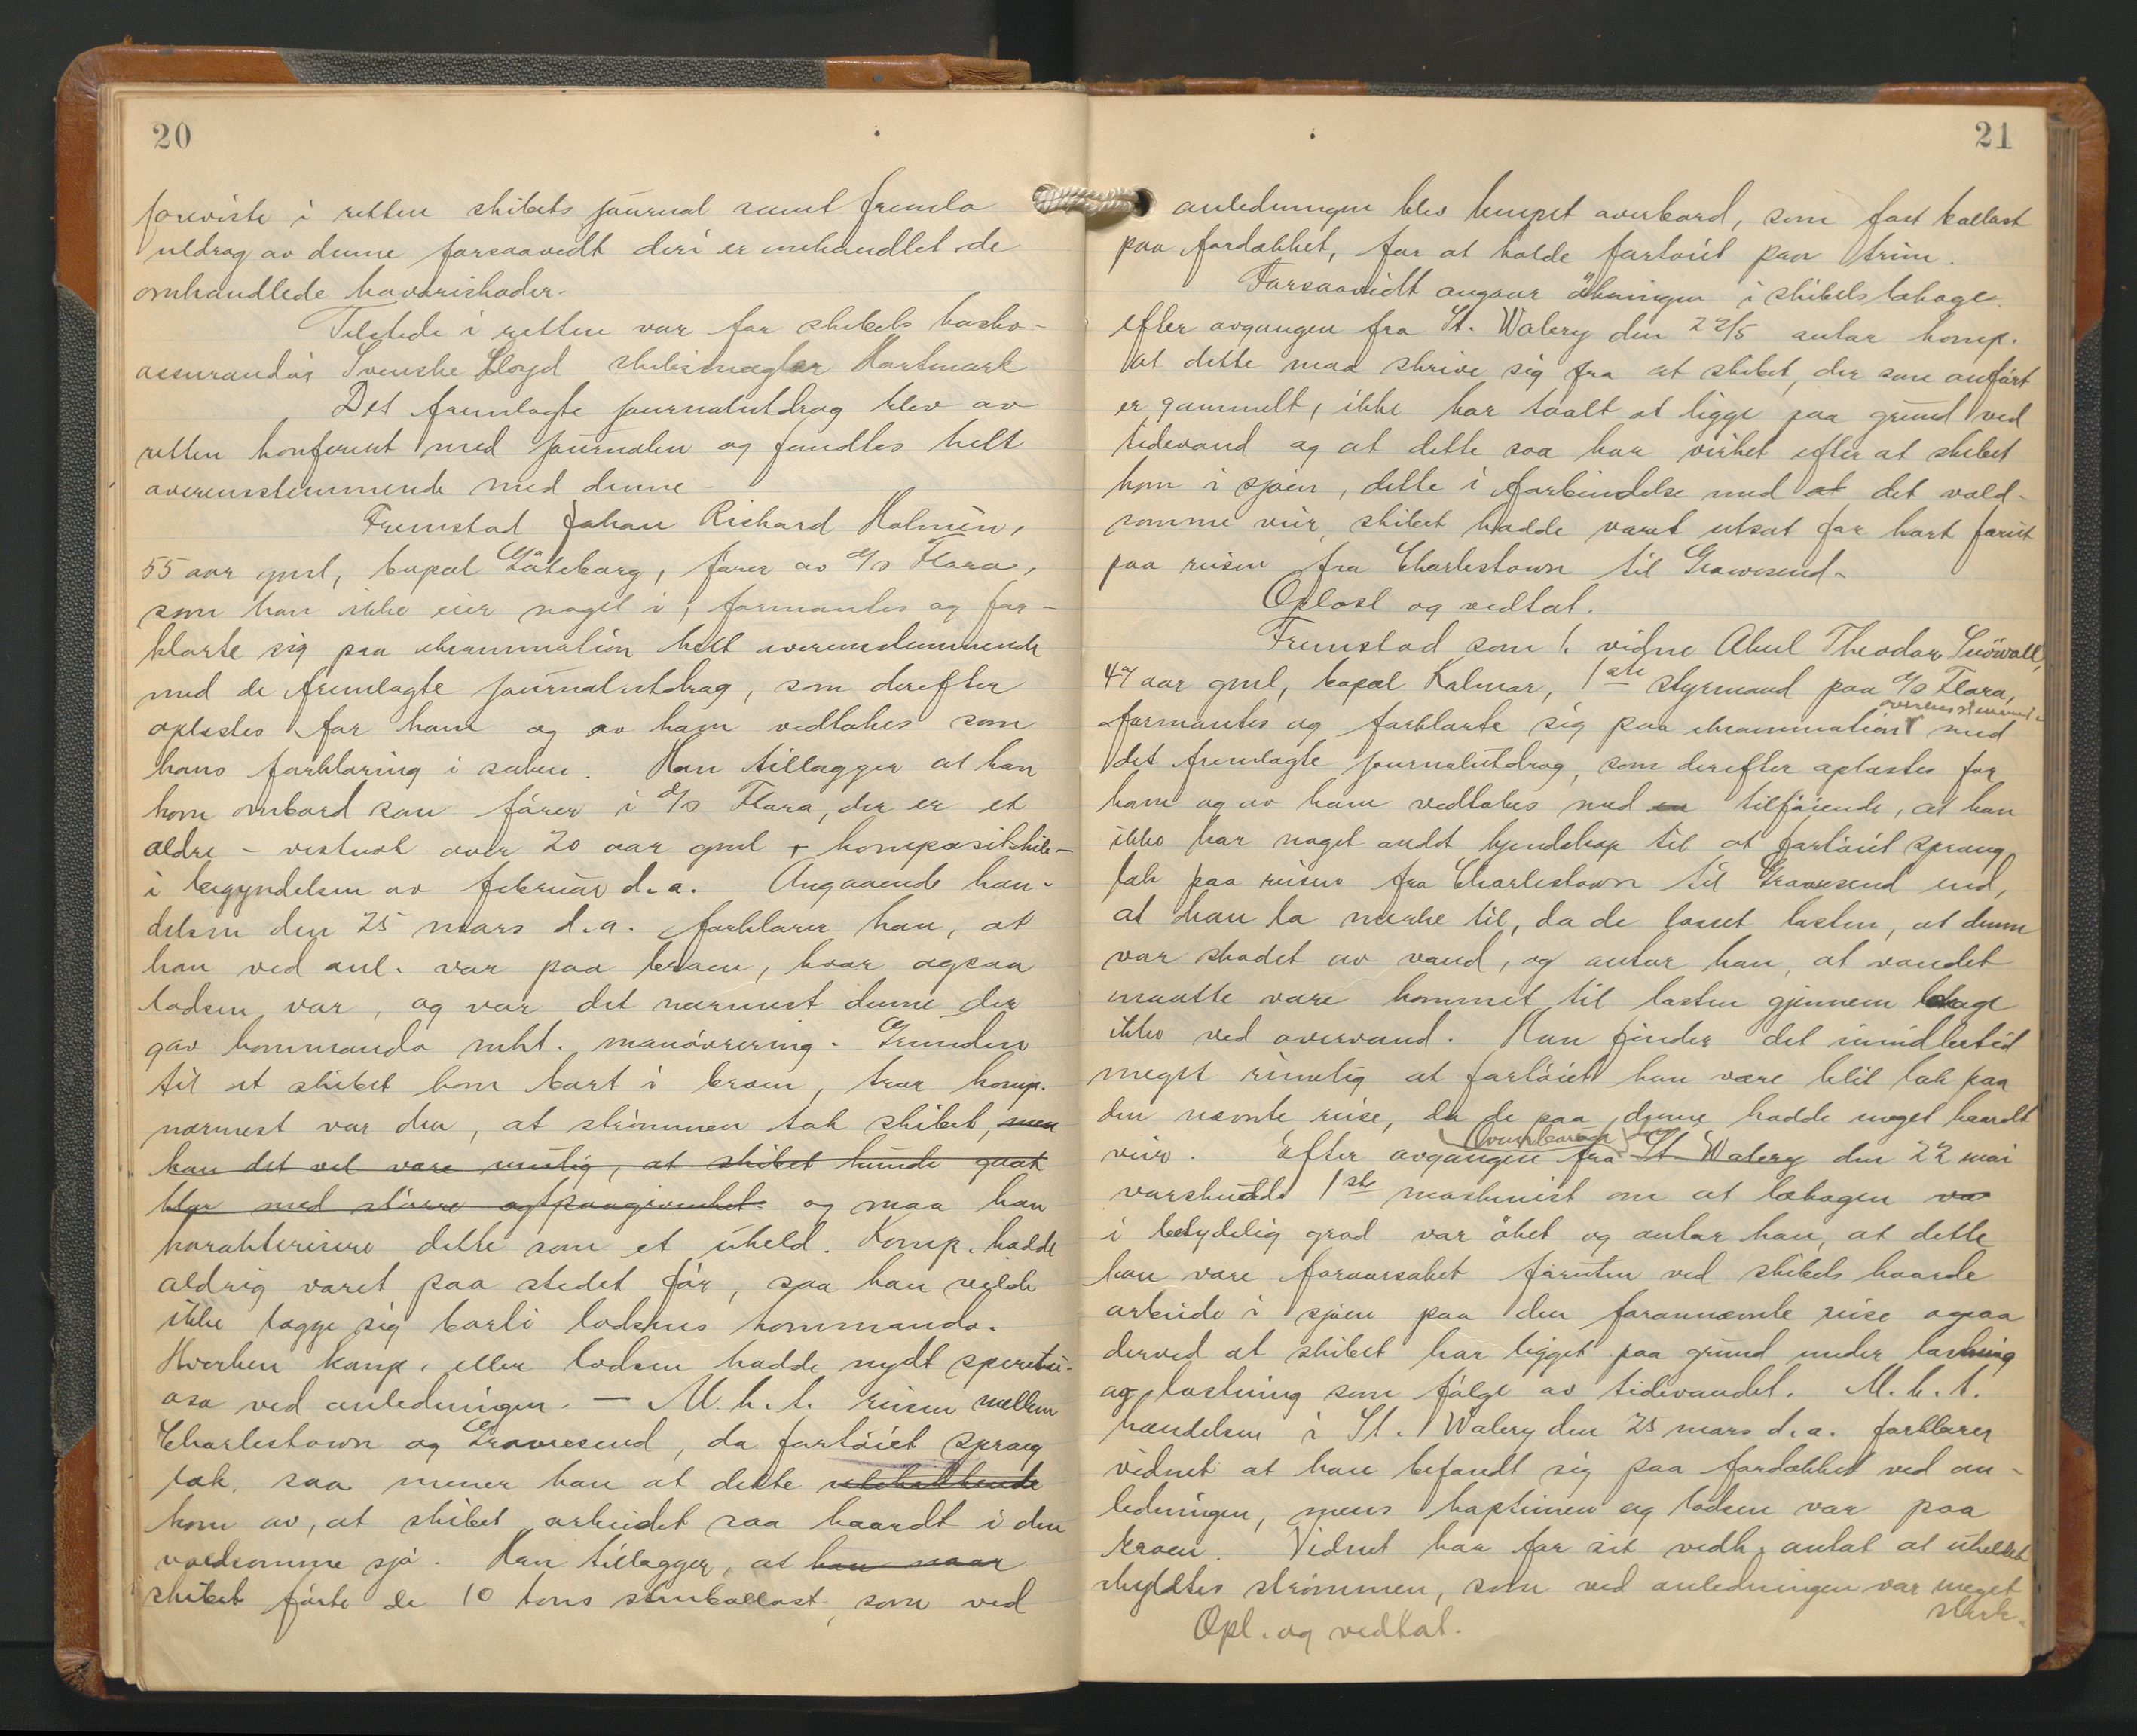 20
foreviste i retten skibets journal samt fremla
utdrag av denne forsaavidt deri er omhandlet de
omhandlede havariskader.
Tilstede i retten var for skibets kasko-
assurandör Svenske Lloyd skibsmægler Hartmark
Det fremlagte journalutdrag blev av
retten konferert med journalen og fandtes helt
overensstemmende med denne
Fremstod Johan Richard Holmèn,
55 aar gml, bopæl Göteborg, förer av d/s Flora,
som han ikke eier noget i, formantes og for-
klarte sig paa exammination helt overensstemmende
med de fremlagte journalutdrag, som derefter
oplæstes for ham og av ham vedtokes som
hans forklaring i saken. Han tillægger at han
kom ombord som förer i d/s Flora, der er et
ældre - vistnok over 20 aar gml + komposittskib -
i begyndelsen av februar d.a. Angaaende hæn-
delsen den 25 mars d.a. forklarer han, at
han ved anl. var paa broen, hvor ogsaa
lodsen var, og var det nærmest denne der
gav kommando mht. manövrering. Grunden
til at skibet kom bort i broen, tror komp.
nærmest var den, at strömmen tok skibet, men
kan det vel være mulig, at skibet kunde gaat
klar med större agtpaagivenhet og maa han
karakterisere dette som et uheld. Komp. hadde
aldrig været paa stedet för, saa han vilde
ikke lægge sig borti lodsens kommando.
Hverken komp. eller lodsen hadde nydt spiritu-
osa ved anledningen. - M.h.t. reisen mellem
Charlestown og Gravesend, da fartöiet sprang
læk, saa mener han at dette
kom av, at skibet arbeidet saa haardt i den
voldsomme sjö. Han tillægger, at han naar
skibet förte de 10 tons stenballast, som ved
21
anledningen blev lempet overbord, som fast ballast
paa fordækket, for at holde fartöiet paa trim.
Forsaavidt angaar ökningen i skibets lækage
efter avgangen fra St. Walery den 22/5 antar komp.
at dette maa skrive sig fra at skibet, der som anfört
er gammelt, ikke har taalt at ligge paa grund ved
tidevand og at dette saa har virket efter at skibet
kom i sjöen, dette i forbindelse med at det vold-
somme veir, skibet hadde været utsat for kort forut
paa reisen fra Charlestown til Gravesend.
Oplæst og vedtat.
Fremstod som 1. vidne Axel Theodor Snöwall,
47 aar gml, bopæl Kalmar, 1ste styrmand paa d/s Flora,
formantes og forklarte sig paa exammination overensstemmende med
det fremlagte journalutdrag, som derefter oplæstes for
ham og av ham vedtokes med en tilföiende, at han
ikke har noget andet kjendskap til at fartöiet sprang
læk paa reisen fra Charlestown til Gravesend end,
at han la mærke til, da de losset lasten, at denne
var skadet av vand, og antar han, at vandet
maatte være kommet til lasten gjennem lækage
ikke ved overvand. Han finder det imidlertid
meget rimelig at fartöiet kan være blit læk paa
den nævnte reise, da de paa denne hadde meget haardt
veir. Efter avgangen fra St Walery den 22 mai
varskudde 1ste maskinist om at lækagen va
i betydelig grad var öket og antar han, at dette
kan være foraarsaket foruten ved skibets haarde
arbeide i sjöen paa den forannævnte reise ogsaa
derved at skibet har ligget paa grund under losning
og lastning som fölge av tidevandet. M.h.t.
hændelsen i St. Walery den 25 mars d.a. forklarer
vidnet at han befandt sig paa fordækket ved an-
ledningen, mens kapteinen og lodsen var paa
broen. Vidnet har for sit vedk. antat at uheldet
skyldtes strömmen, som ved anledningen var meget
sterk.
Opl. og vedtat.